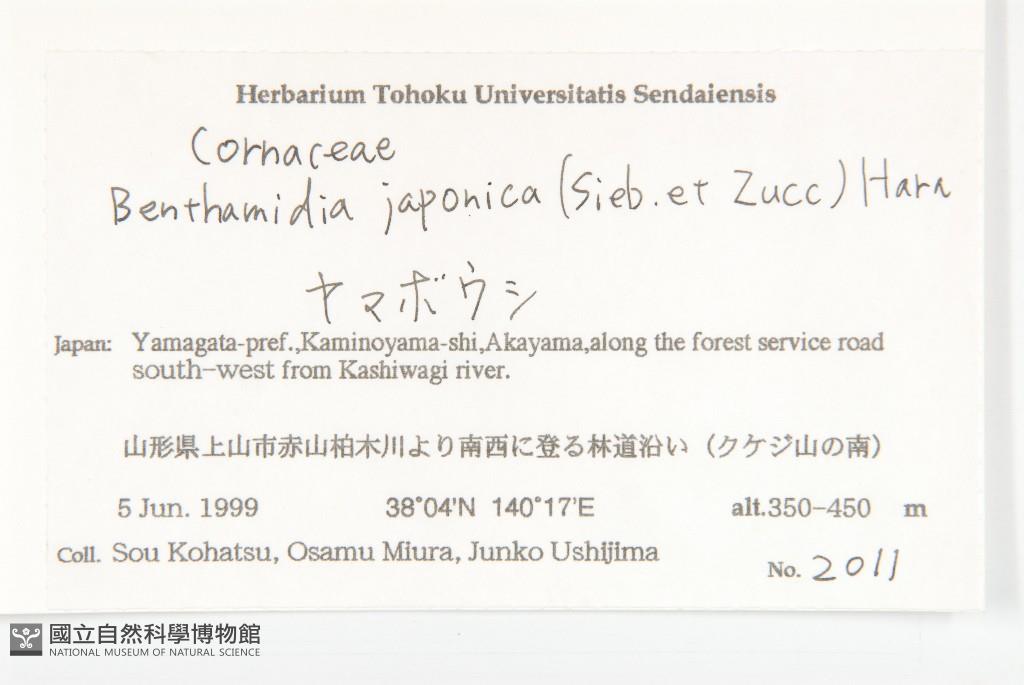 Herbarium Tohoku Universitatis Sendaiensis
Cornaceae
Benthamidia japonica (Sieb. et Zucc) Hara
ヤマボウシ
Japan: Yamagata-pref.,Kaminoyama-shi,Akayama,along the forest service road
south-west from Kashiwagi river.
山形県上山市赤山柏木川より南西に登る林道沿い（クケジ山の南）
5 Jun. 1999 38°04'N 140°17'E alt.350-450 m
Coll. Sou Kohatsu, Osamu Miura, Junko Ushijima
No. 2011
國立自然科學博物館
NATIONAL MUSEUM OF NATURAL SCIENCE